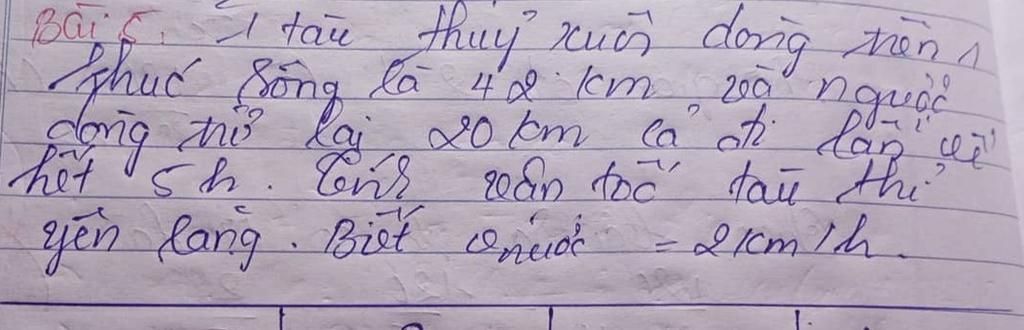 Bài 5. 1 tàu thuỷ xuôi dòng trên 1
khúc sông là 48 km và ngược
dòng trở lại 20 km cả đi lẫn về
hết 5h. Tính vận tốc tàu thỉ
yên lặng. Biết vnước = 2 km/h.